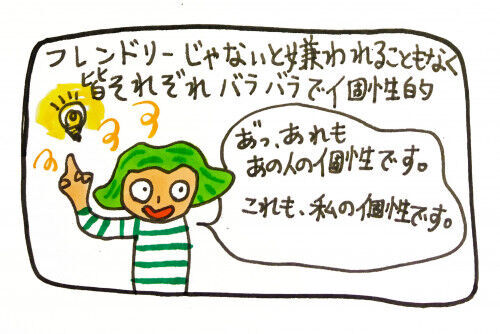 フレンドリーじゃないと嫌われることもなく
皆それぞれバラバラで個性的
あっ、あれも
あの人の個性です。
これも、私の個性です。